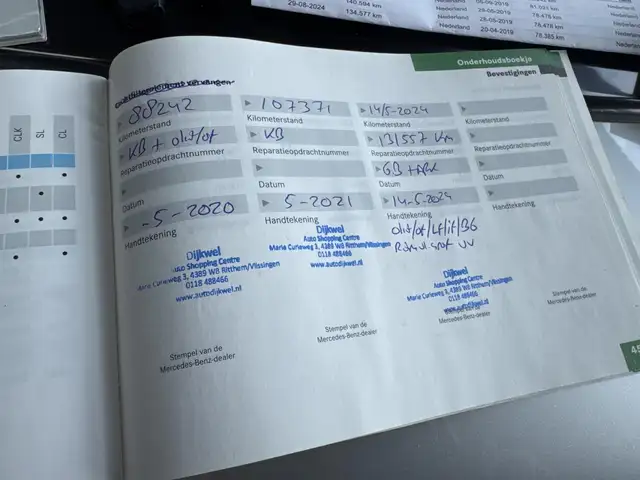 29-08-2024
140.594 km
134.577 km
Nederland
Nederland
Nederland
Nederland
28-05-2019
20-04-2019
81.021 km
78.478 km
78.478 km
78.385 km
Onderhoudsboekje
Bevestigingen
CLK
SL
CL
88242
Kilometerstand
KB + olie/of
Reparatieopdrachtnummer
Datum
-5-2020
Handtekening
Dijkwel
Auto Shopping Centre
Marie Curieweg 3, 4389 WB Ritthem/Vlissingen
0118 488466
www.autodijkwel.nl
Stempel van de
Mercedes-Benz-dealer
107371
Kilometerstand
KB
Reparatieopdrachtnummer
Datum
5-2021
Handtekening
Dijkwel
Auto Shopping Centre
Marie Curieweg 3, 4389 WB Ritthem/Vlissingen
0118 488466
www.autodijkwel.nl
Stempel van de
Mercedes-Benz-dealer
14/5-2024
Kilometerstand
131557 Km
Reparatieopdrachtnummer
GB + APK
Datum
14-5-2024
Handtekening
Dijkwel
Auto Shopping Centre
Marie Curieweg 3, 4389 WB Ritthem/Vlissingen
0118 488466
www.autodijkwel.nl
Stempel van de
Mercedes-Benz-dealer
Kilometerstand
Reparatieopdrachtnummer
Datum
Handtekening
Stempel van de
Mercedes-Benz-dealer